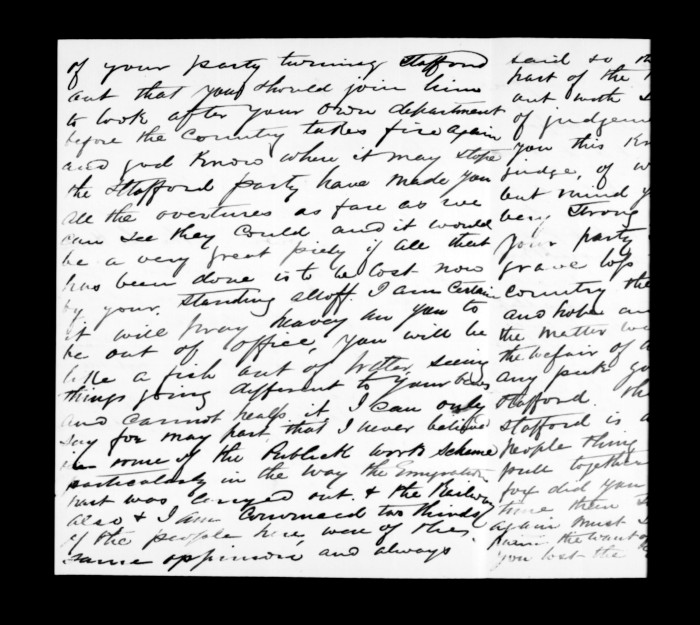 of your party turning Stafford
out that you should join him
to look after your own department
before the Country takes fire again
and god know where it may stope
the Stafford party have made you
all the overtures as fare as we
can see they could and it would
be a very great piety if all that
has been done is to be lost now
by your standing alloff. I am Certain
it will pray heavey an you to
be out of office, you will be
like a fish out of Watter, seeing
things going different to your
and cannot healp it I can only
say for may part that I never believed
in some of the Publick work scheme
particularly in the way the Emigration
part was Carryed out. & the Railway
also & I am Convinced two thirds
of the people here were of the
same oppinion and always
said so
part of the
out with
of judgemen
you this
judge, of
but mind
very Strong
your party
grave
Country the
and
the matter
the
any
Stafford.
Stafford is
People thing
pull together
for did you
time then
again must
the want of
you lost the